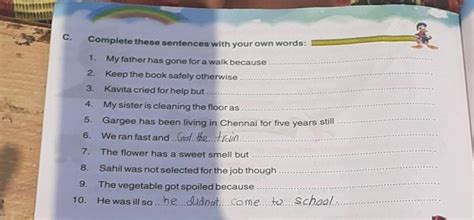 C. Complete these sentences with your own words:
1. My father has gone for a walk because
2. Keep the book safely otherwise
3. Kavita cried for help but
4. My sister is cleaning the floor as
5. Gargee has been living in Chennai for five years still
6. We ran fast and Got the train
7. The flower has a sweet smell but
8. Sahil was not selected for the job though
9. The vegetable got spoiled because
10. He was ill so he didnot come to school.